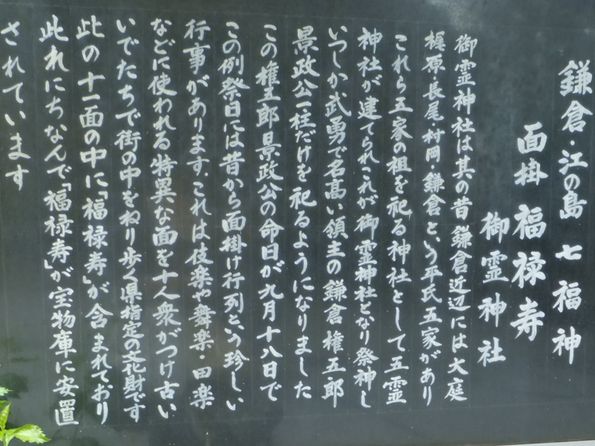 鎌倉・江の島 七福神
面掛 福禄寿
御霊神社
御霊神社は其の昔鎌倉近辺には大庭
梶原・長尾村岡・鎌倉という平氏五家があり
これら五家の祖を祀る神社として五霊
神社が建てられこれが御霊神社となり祭神も
いつしか武勇で名高い領主の鎌倉権五郎
景政公一柱だけを祀るようになりました
この権五郎景政公の命日が九月十八日で
この例祭日には昔から面掛け行列という珍しい
行事があります.これは伎楽や舞楽・田楽
などに使われる特異な面を十人衆がつけ古い
いでたちで街の中をねり歩く県指定の文化財です
此の十一面の中に福禄寿が含まれており
此れにちなんで「福禄寿」が宝物庫に安置
されています